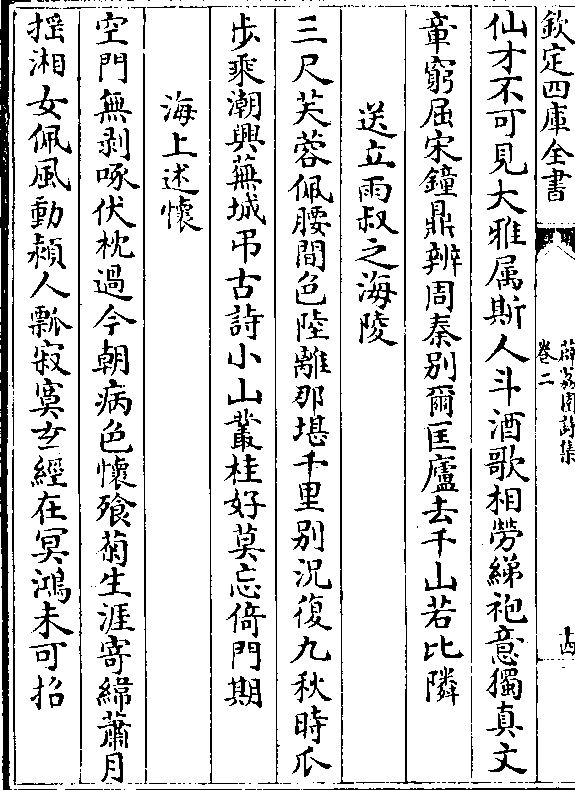 欽定四庫全書
薜荔園詩集
卷二
十四
仙才不可見大雅属斯人斗酒歌相勞綈袍意獨真文
章窮屈宋鐘鼎辨周秦別爾匡廬去千山若比隣
送立雨叔之海陵
三尺芙蓉佩腰間色陸離那堪千里別況復九秋時瓜
步乘潮興蕪城弔古詩小山叢桂好莫忘倚門期
海上述懷
空門無剥啄伏枕過今朝病色懷飱菊生涯寄緯蕭月
揺湘女佩風動潁人瓢寂寞玄經在冥鴻未可招